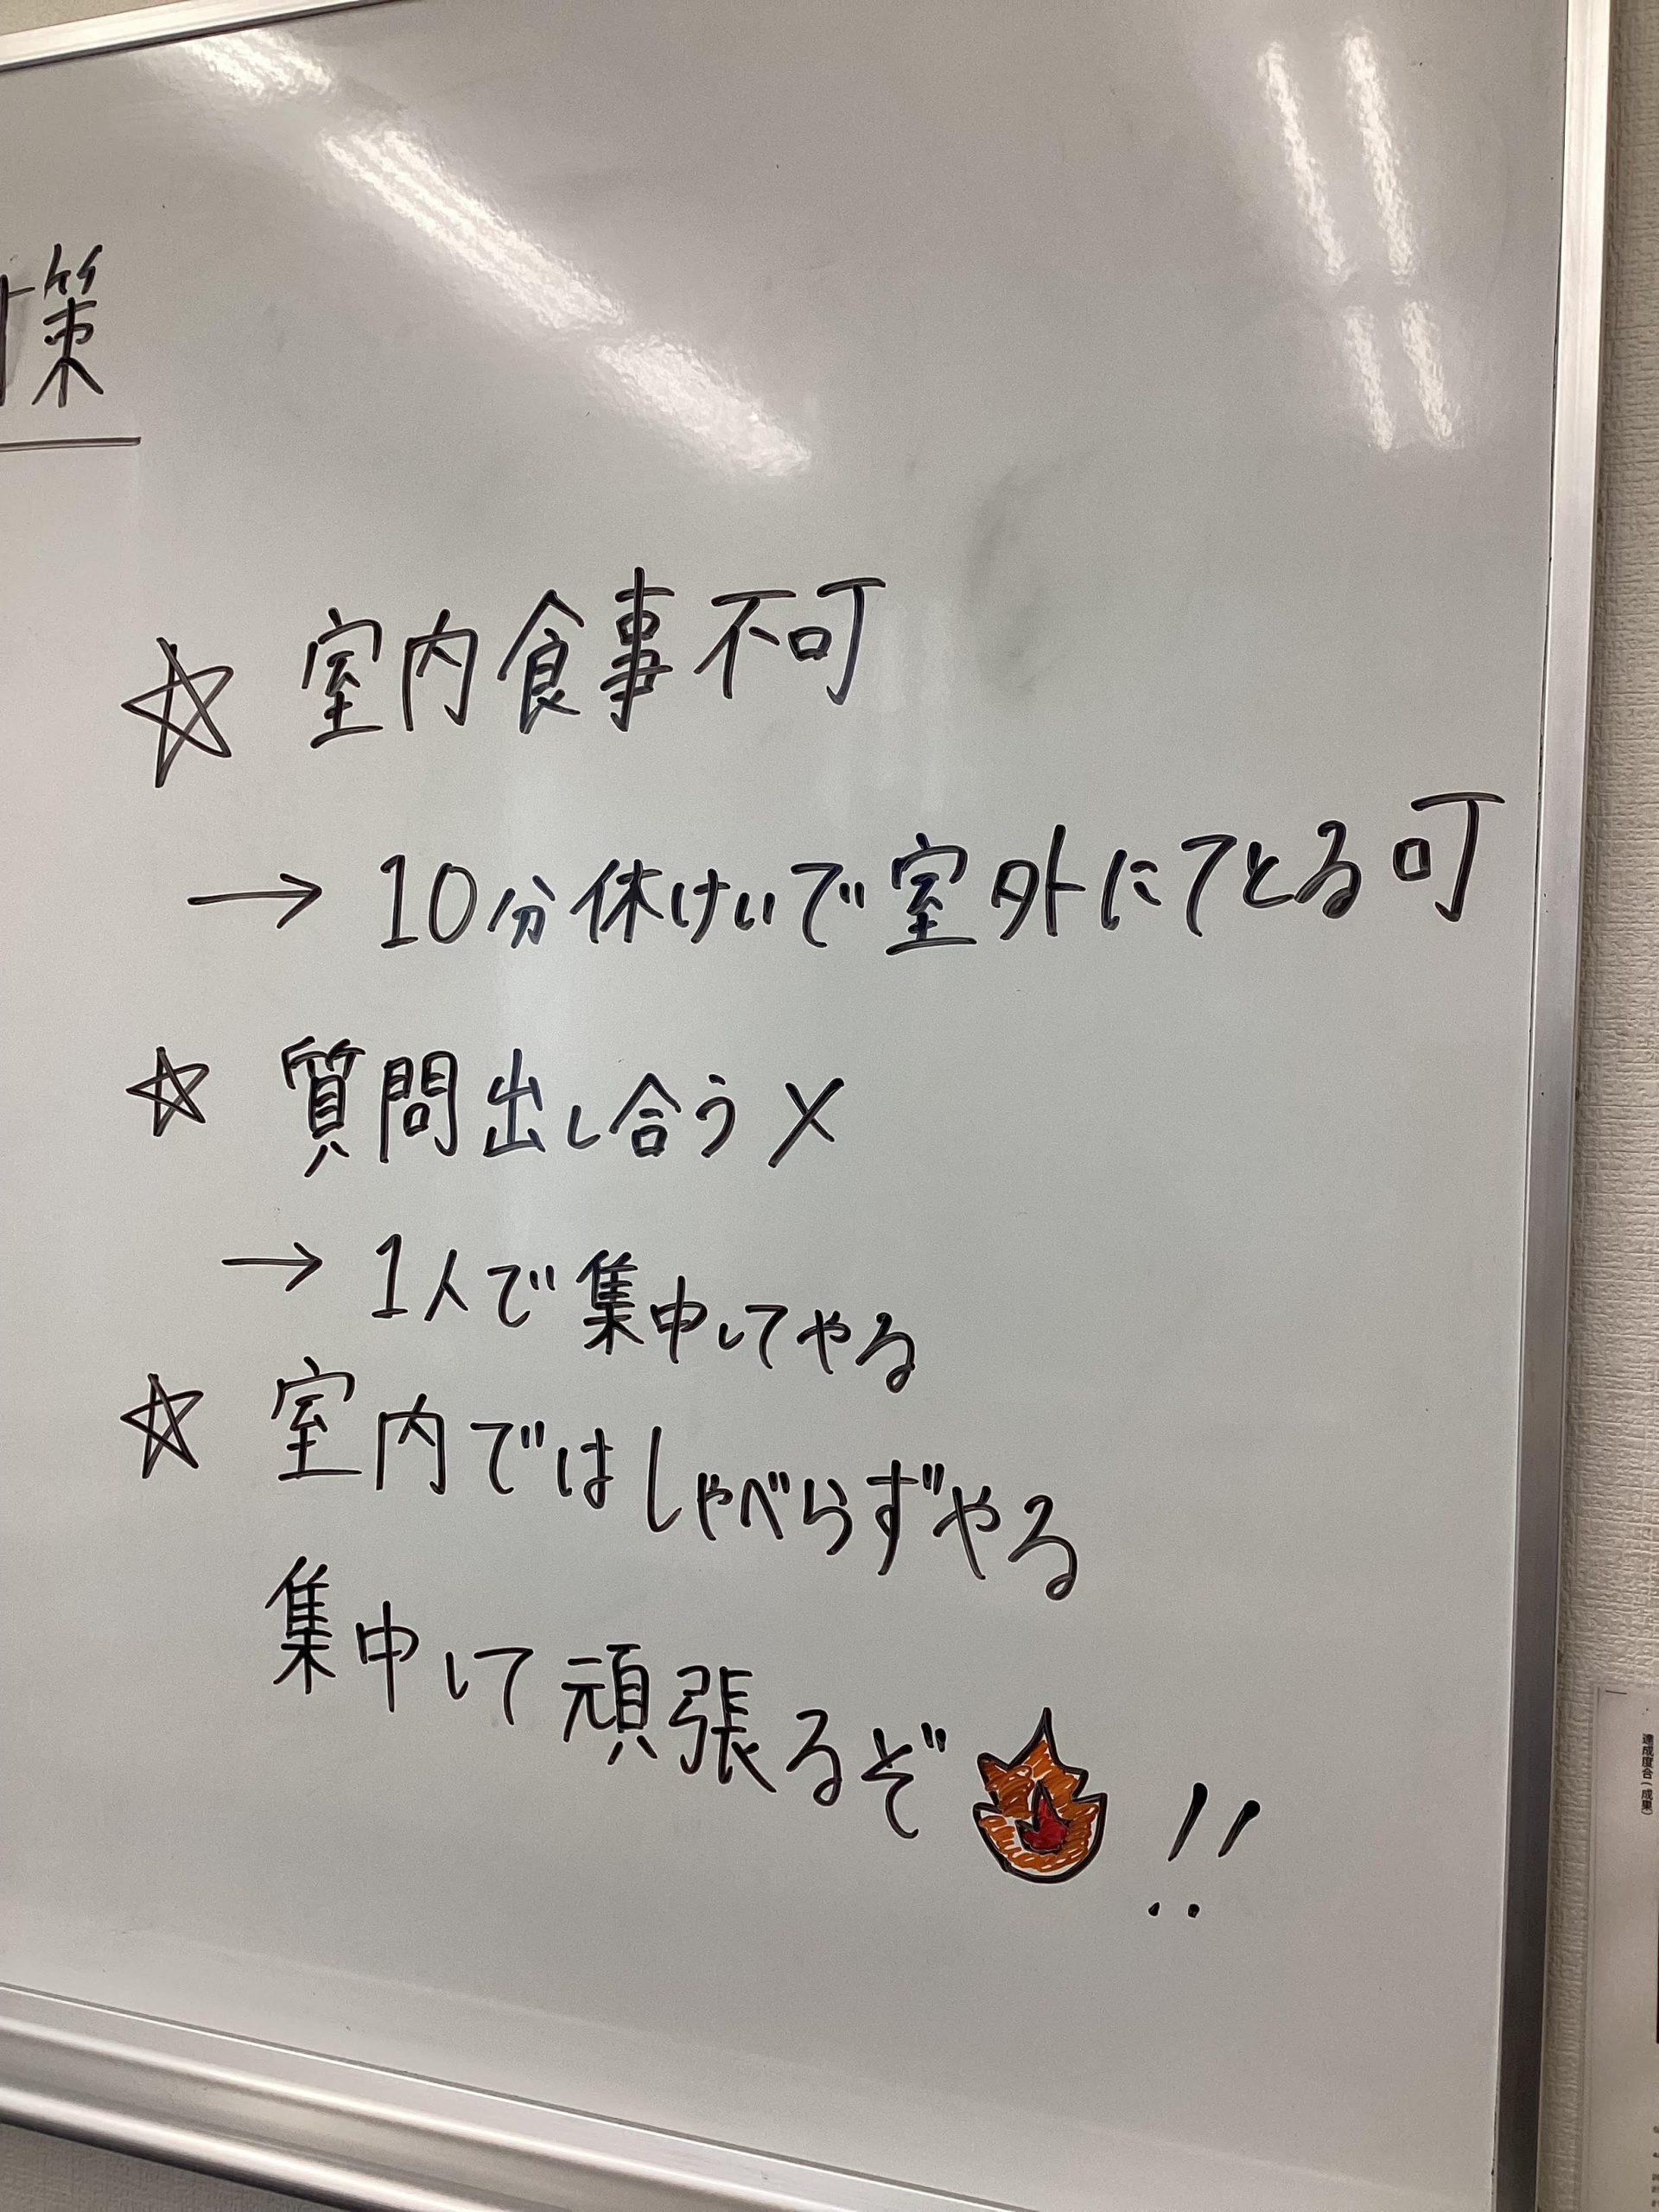 策
☆ 室内食事不可
→ 10分休けいで室外にてとる可
☆ 質問出し合う×
→ 1人で集中してやる
☆ 室内ではしゃべらずやる
集中して頑張るぞ!!
達成度合(成果)